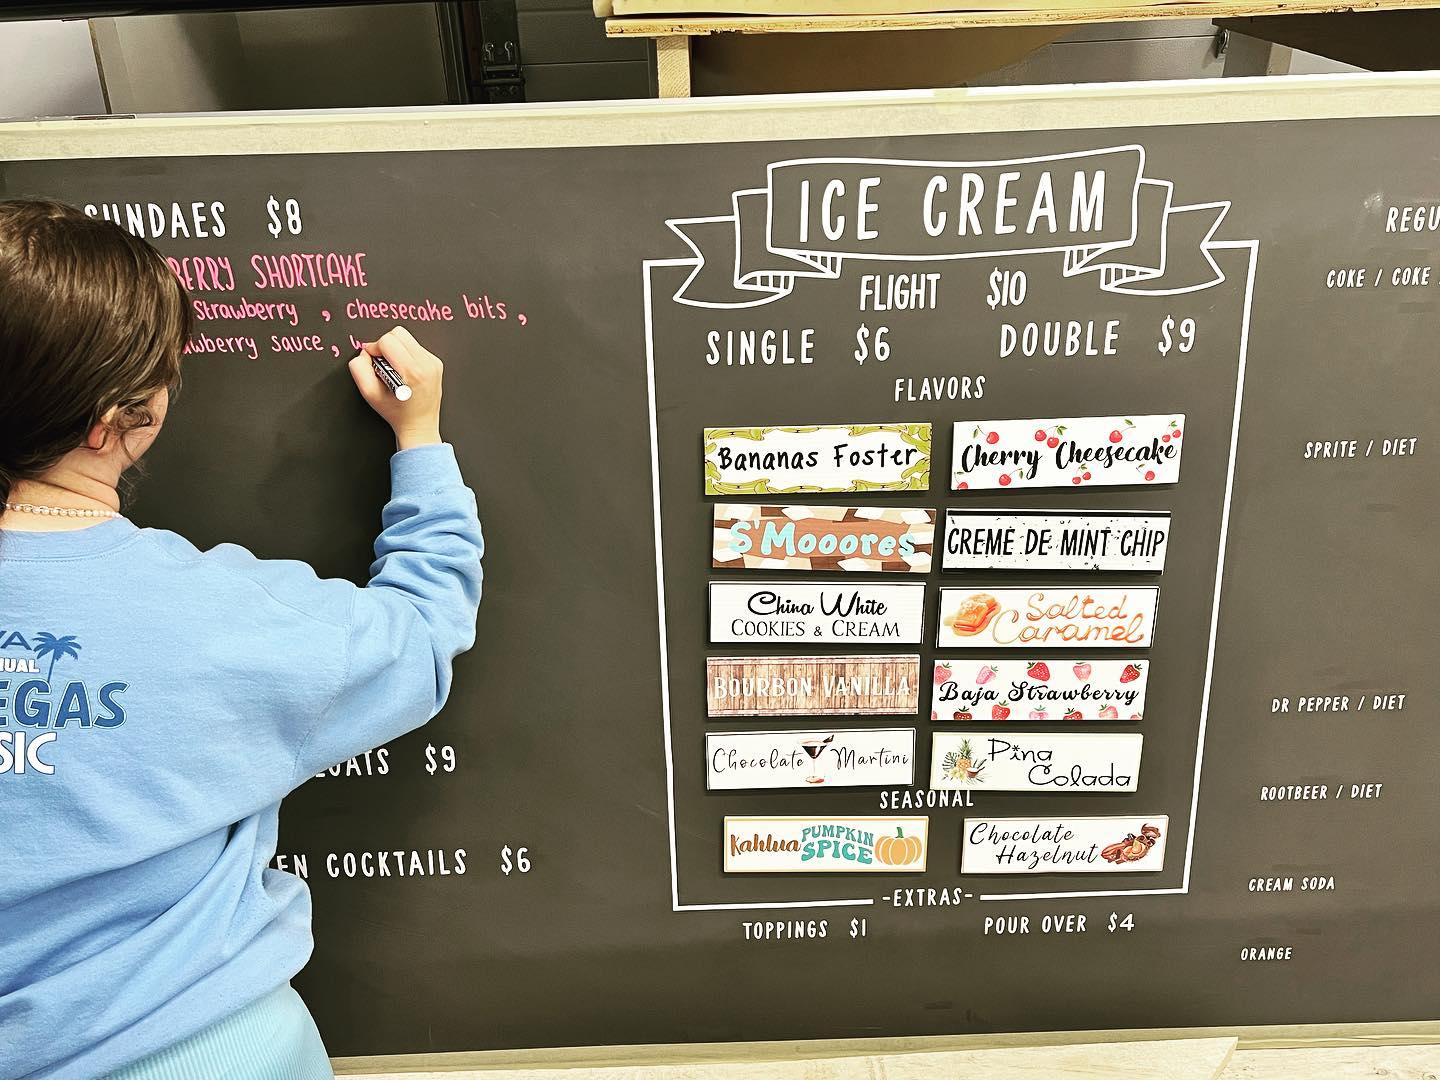 SUNDAES $8
SHORTCAKE
Strawberry , cheesecake bits ,
sauce ,
$9
COCKTAILS $6
ICE CREAM
FLIGHT $10
SINGLE $6 DOUBLE $9
FLAVORS
Bananas Foster
Cherry Cheesecake
S'Mooores
CREME DE MINT CHIP
China White
COOKIES & CREAM
Salted
Caramel
BOURBON VANILLA
Baja Strawberry
Chocolate Martini
Pina
Colada
SEASONAL
Kahlua PUMPKIN
SPICE
Chocolate
Hazelnut
-EXTRAS-
TOPPINGS $1 POUR OVER $4
COKE / COKE
SPRITE / DIET
DR PEPPER / DIET
ROOTBEER / DIET
CREAM SODA
ORANGE